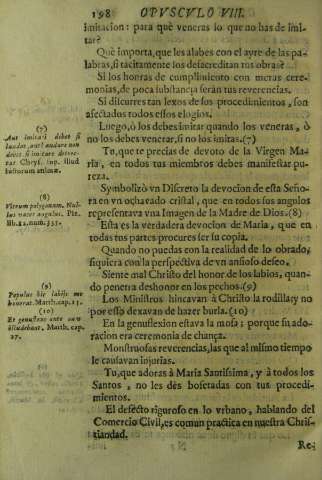 198 OPUSCULO VIII.
imitacion: para què veneras lo que no has de imi-
tar?
Què importa, que les alabes con el ayre de las pa-
labras, si tacitamente los desacreditan tus obras?
Si los honras de cumplimiento con meras cere-
monias, de poca substancia seràn tus reverencias.
Si discurres tan lexos de los procedimientos, son
afectados todos essos elogios.
Luego, ò los debes imitar quando los veneras, ò
no los debes venerar, si no los imitas.(7)
Tu, que te precias de devoto de la Virgen Ma-
ria, en todos tus miembros debes manifestar pu-
reza.
Symbolizò vn Discreto la devocion de esta Seño-
ra en vn ochavado cristal, que en todos sus angulos
representava vna Imagen de la Madre de Dios.(8)
Esta es la verdadera devocion de Maria, que en
todas tus partes procures ser su copia.
Quando no puedas con la realidad de lo obrado,
siquiera con la perspectiva de vn ansioso deseo.
Siente mal Christo del honor de los labios, quan-
do penetra deshonor en los pechos.(9)
Los Ministros hincavan à Christo la rodilla, y no
por esso dexavan de hazer burla.(10)
En la genuflexion estava la mofa; porque su ado-
racion era ceremonia de chança.
Monstruosas reverencias, las que al mismo tiempo
le causavan injurias.
Tu, que adoras à Maria Santissima, y à todos los
Santos, no les dès bofetadas con tus procedi-
mientos.
El defecto riguroso en lo vrbano, hablando del
Comercio Civil, es comun practica en nuestra Chris-
tiandad.
Re-
(7)
Aut imitari debet si
laudat, aut laudare non
debet si imitare detrec-
tat Chrys. sup. illud
Iustorum animæ.
(8)
Virum polygonum. Nul-
lus vacet angulus. Pic.
lib.22.num.335.
(9)
Populus hic labijs me
honorat. Matth. cap.15.
(10)
Et genuflexo ante eum
illudebant, Matth. cap.
27.